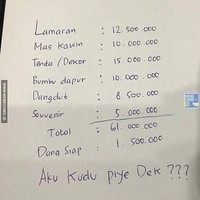 Lamaran : 12.500.000
Mas Kawin : 10.000.000
Tenda / Dekor : 15.000.000
Bumbu dapur : 10.000.000
Dangdut : 8 500.000
Souvenir : 5 000.000
Total : 61.000.000
Dana Siap : 1.500.000
Aku Kudu Piye Dek ???